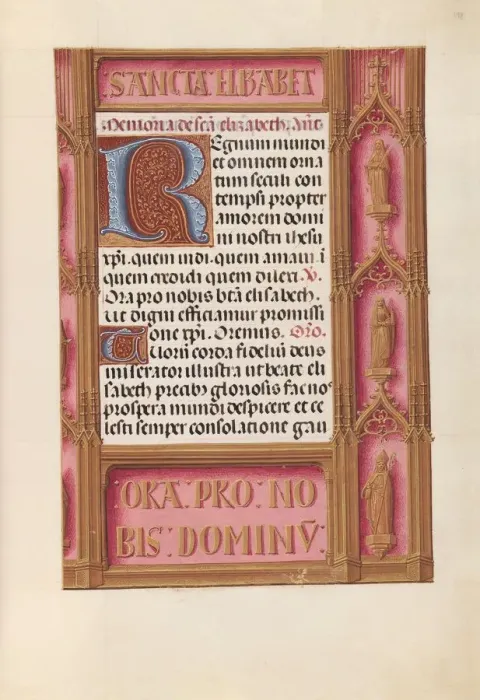 SANCTA ELISABET
Memoria de scā elizabeth. Ant̄
Regnum mundi
et omnem orna
tum seculi con
tempsi propter
amorem domi
ni nostri ihesu
xp̄i. quem uidi. quem amaui. ī
quem credidi quem dilexi. V̄.
Ora pro nobis btā elisabeth.
Ut digni efficiamur promissi
one xp̄i. Oremus. Oro.
Tuorū corda fideliū deus
miserator illustra et beate eli
sabeth precibꝰ gloriosis fac noˢ
prospera mundi despicere et ce
lesti semper consolatione gau
ORA: PRO: NO
BIS: DOMINV̄: